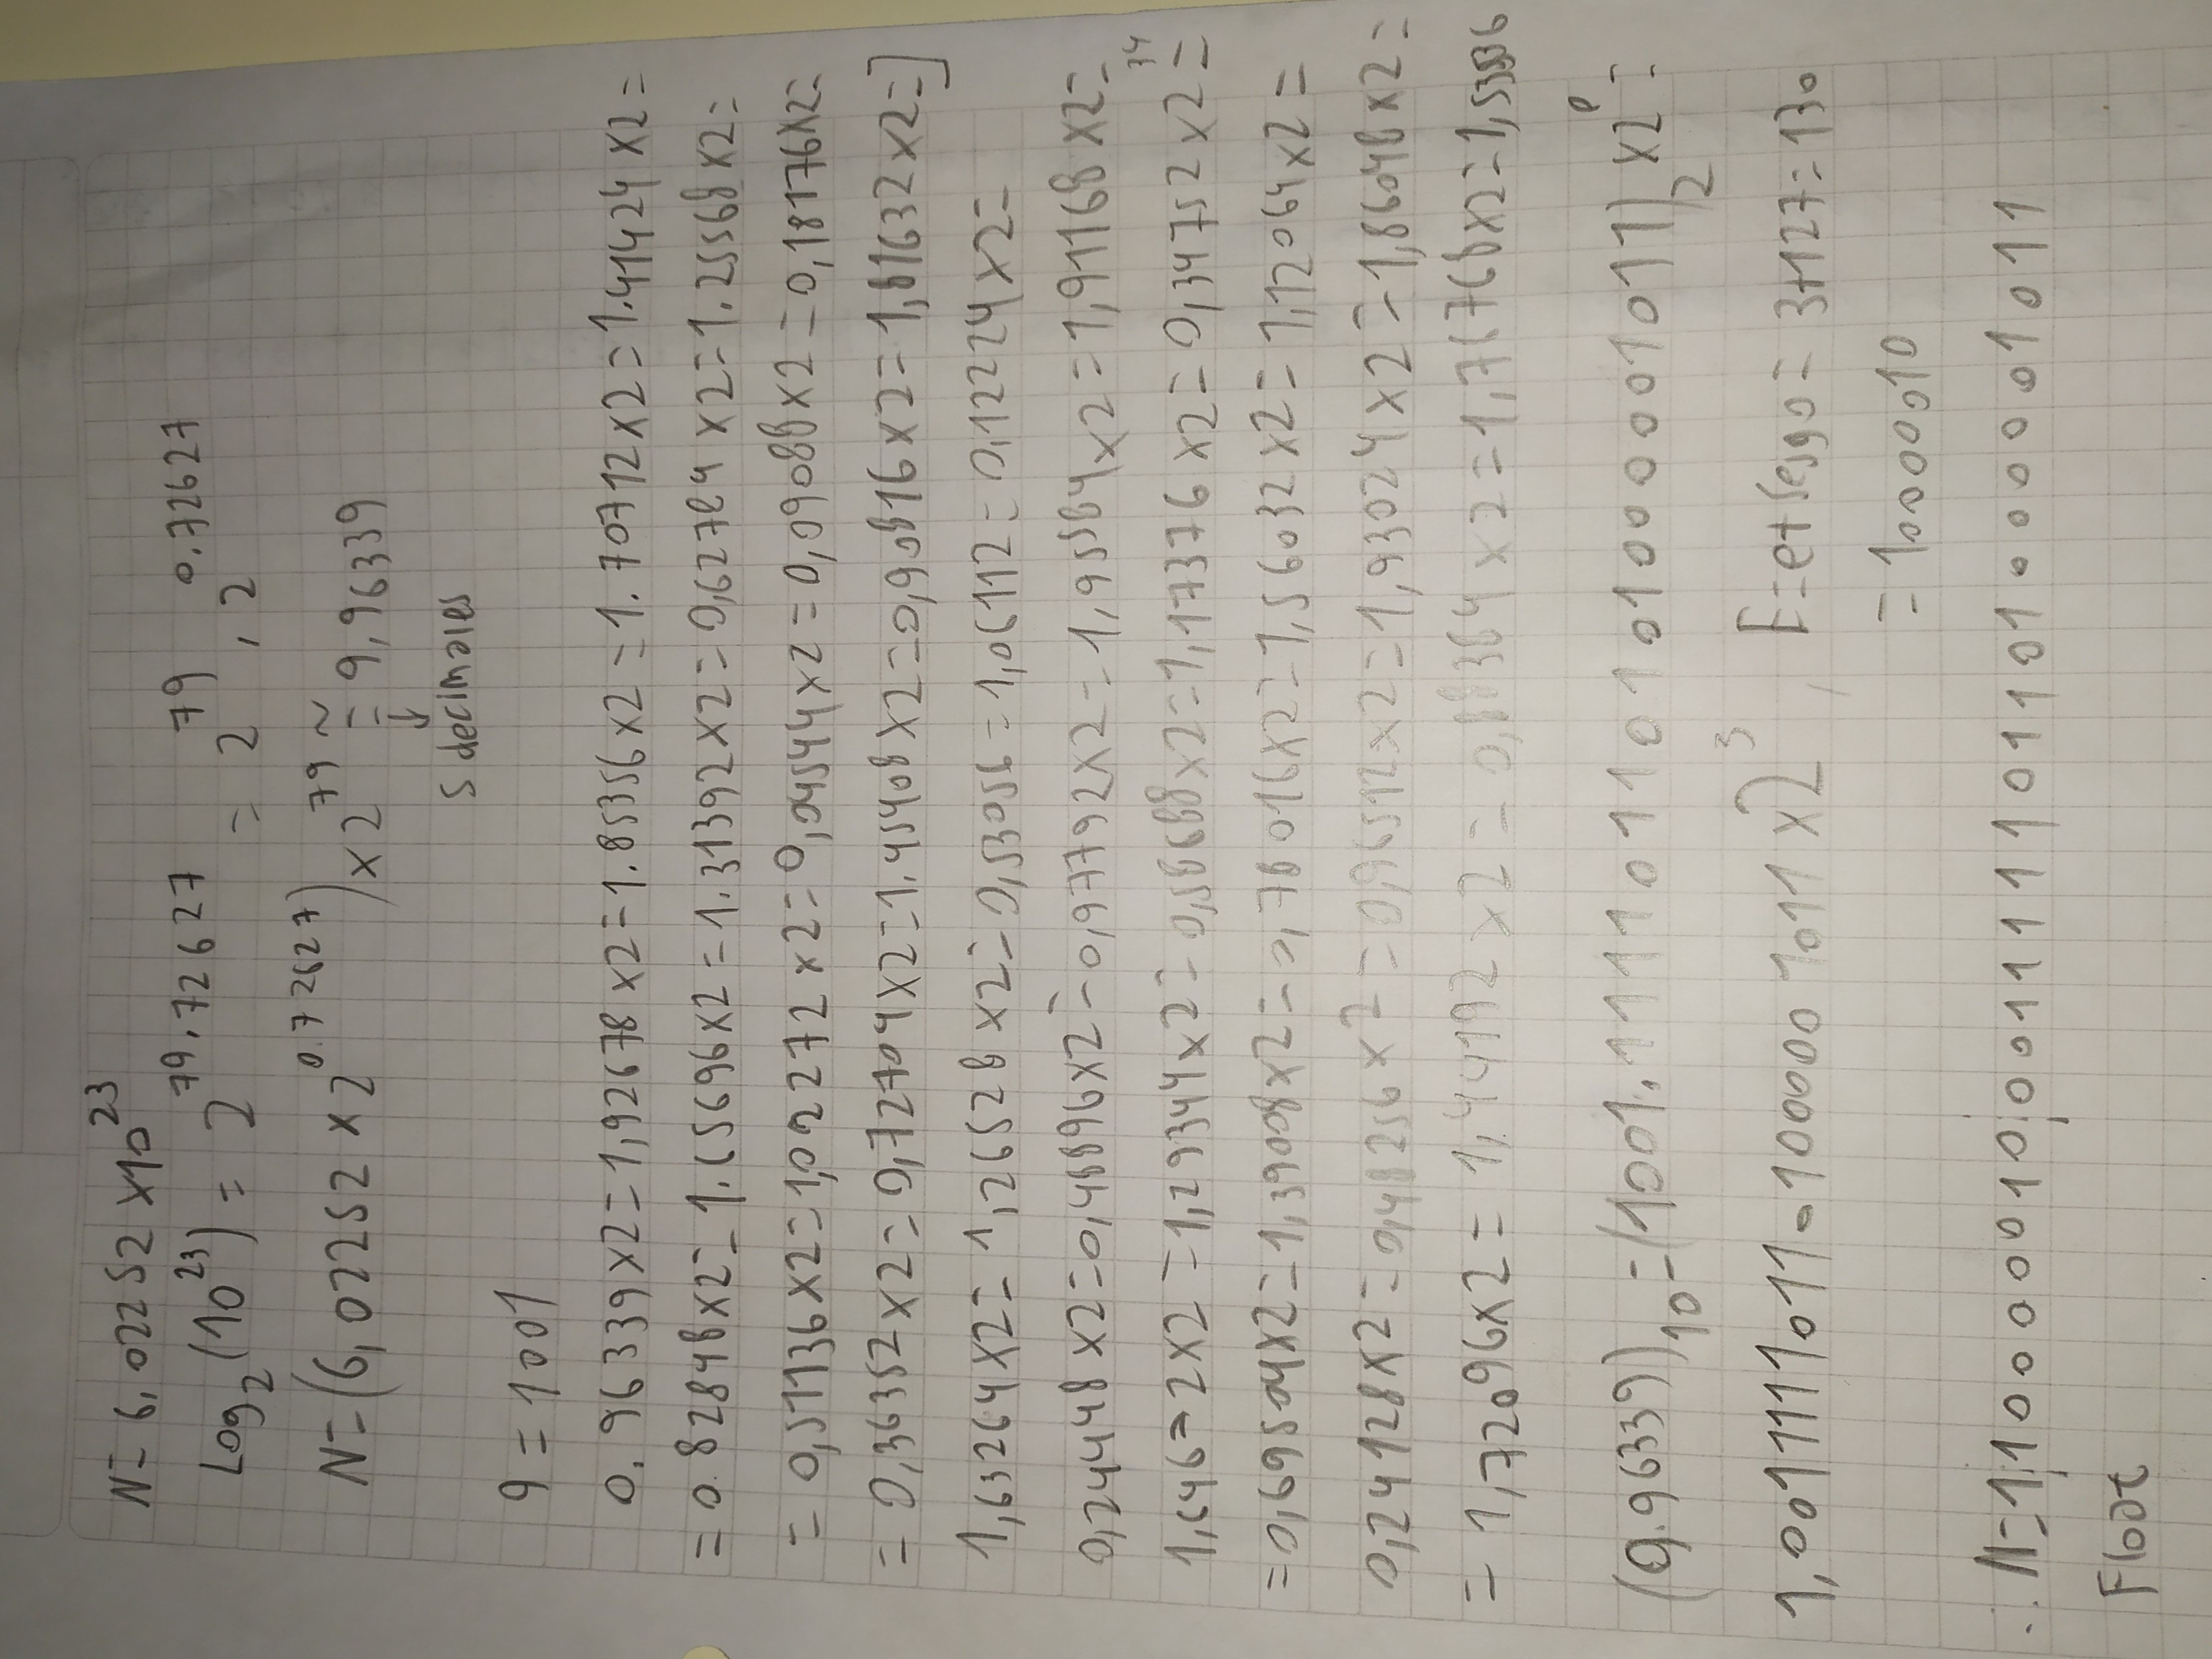 N= 6,02252 ×10^23
Log_2 (10^23) = 2^79.72627 = 2^79 , 2^0.72627
N= (6,02252 × 2^0.72627) × 2^79 ≅ 9,96339
↓
5 decimales
9 = 1001
0.96339×2=1,92678×2=1.85356×2=1.70712×2=1.41424×2=
=0.82848×2=1.65696×2=1.31392×2=0,62784×2=1.25568×2=
= 0,51136×2=1,02272×2=0,04544×2=0,09088×2=0,18176×2=
= 0,36352×2=0,72704×2=1.45408×2=0,90816×2=1,81632×2=]
1,63264×2=1,26528×2=0,53056=1,06112=0,12224×2=
0,24448×2=0,48896×2=0,97792×2=1,95584×2=1,91168×2=
34
×2=1,29344×2=0,58688×2=1,17376×2=0,34752×2=
=0,69504×2=1,39008×2=0,78016×2=1,56032×2=1,12064×2=
0,24128×2=0,48256×2=0,96512×2=1,93024×2=1,86048×2=
= 1,72096×2=1,44192×2=0,88384×2=1,76768×2=1,53536
(9.96339)_10=(1001.1111011010100000 1011)_2 ×2^e=
1,00111110110100000 1011 ×2^3 , E=e+sesgo=3+127=130
= 10000010
∴ N=1;10000010;00111110110100000 1011
Float